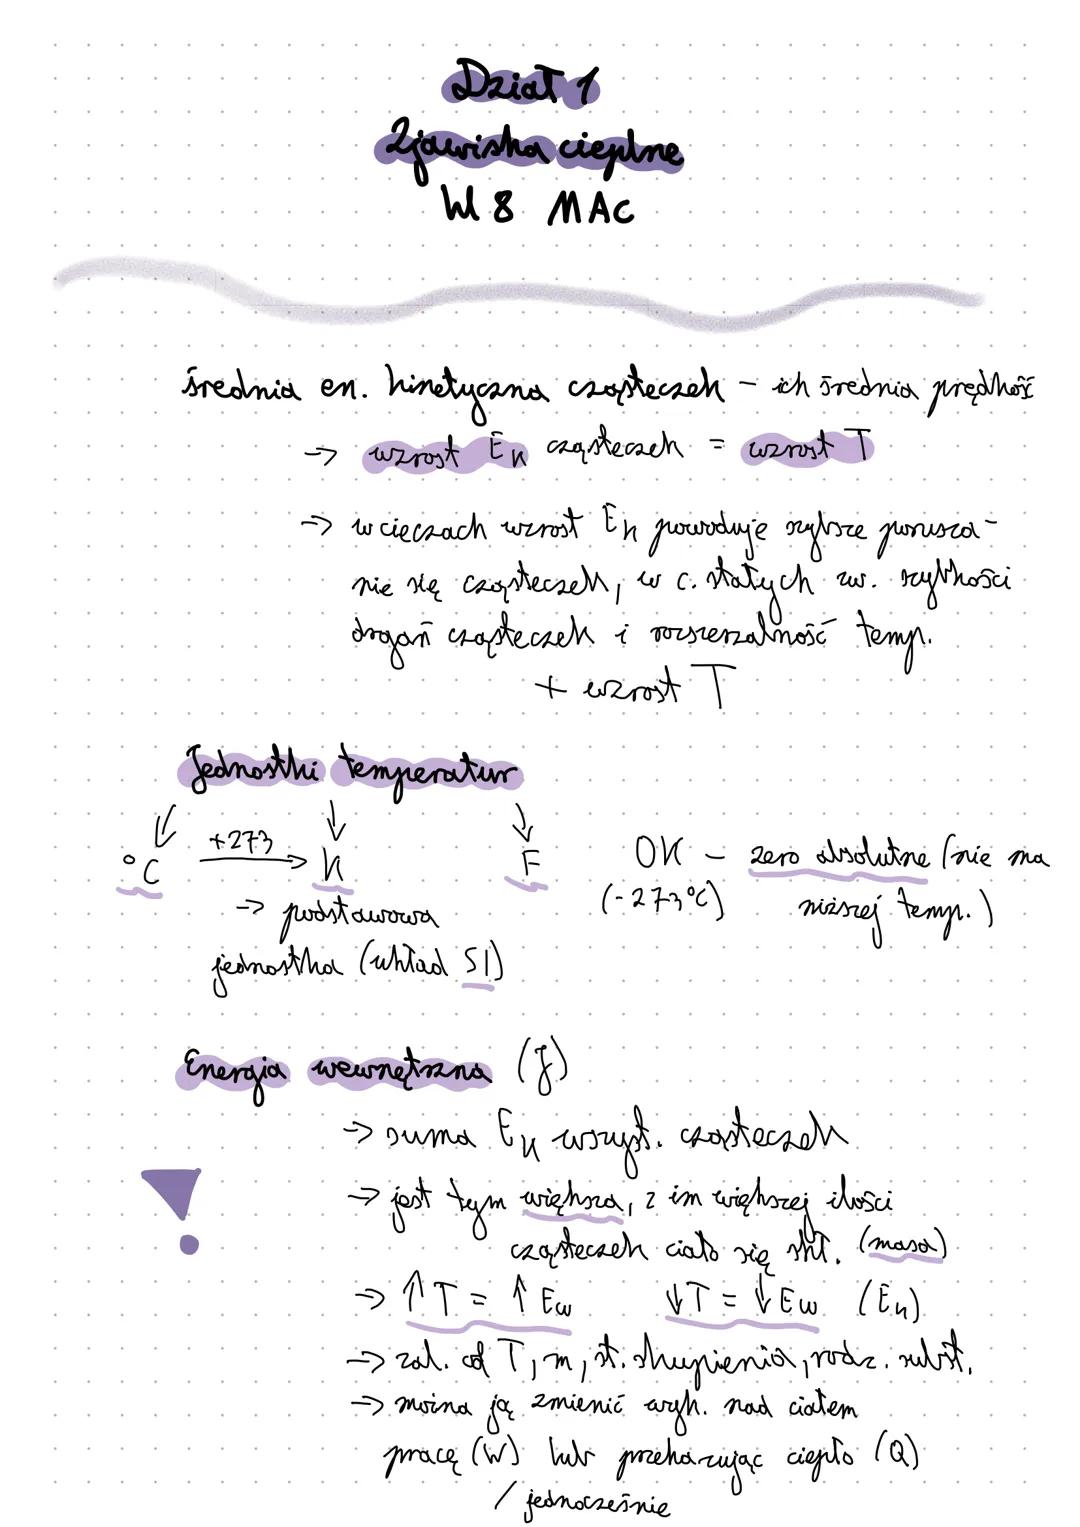 Dział 1
Zjawiska cieplne
kl 8 MAC
średnia en. kinetyczna cząsteczek – ich średnia prędkość
→ wzrost Ek cząsteczek = wzrost T
→ w cieczach wzrost Ek powoduje szybsze porusza-
nie się cząsteczek, w c. stałych zw. szybkości
drgań cząsteczek i rozszerzalność temp.
+ wzrost T
Jednostki temperatur
°C +273 → K F OK – zero absolutne (nie ma
→ podstawowa (-273°C) niższej temp.)
jednostka (układ SI)
Energia wewnętrzna (J)
→ suma Ek wszyst. cząsteczek
→ jest tym większa, z im większej ilości
cząsteczek ciało się skł. (masa)
→ ↑T = ↑Ew ↓T = ↓Ew (Ek)
→ zal. od T, m, st. skupienia, rodz. subst.
→ można ją zmienić wyk. nad ciałem
pracę (W) lub przekazując ciepło (Q)
/ jednocześnie